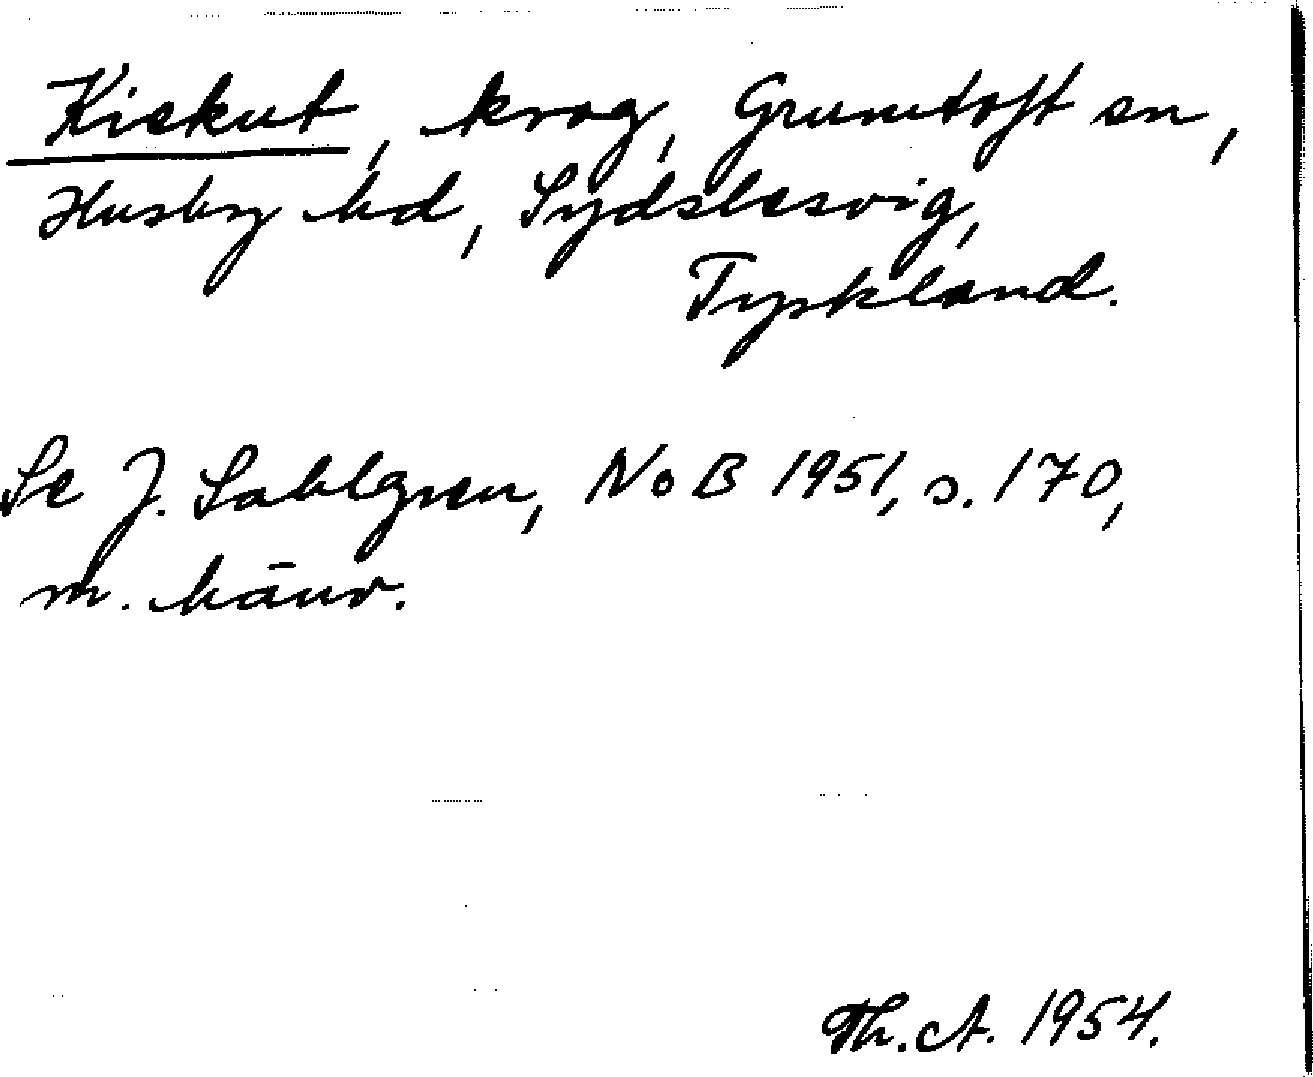 Kiekut, krog, Grumtoft sn,
Husby hd, Sydslesvig,
Tyskland.
Se J. Sahlgren, NoB 1951, s. 170,
m. hänv.
Th. A. 1954.